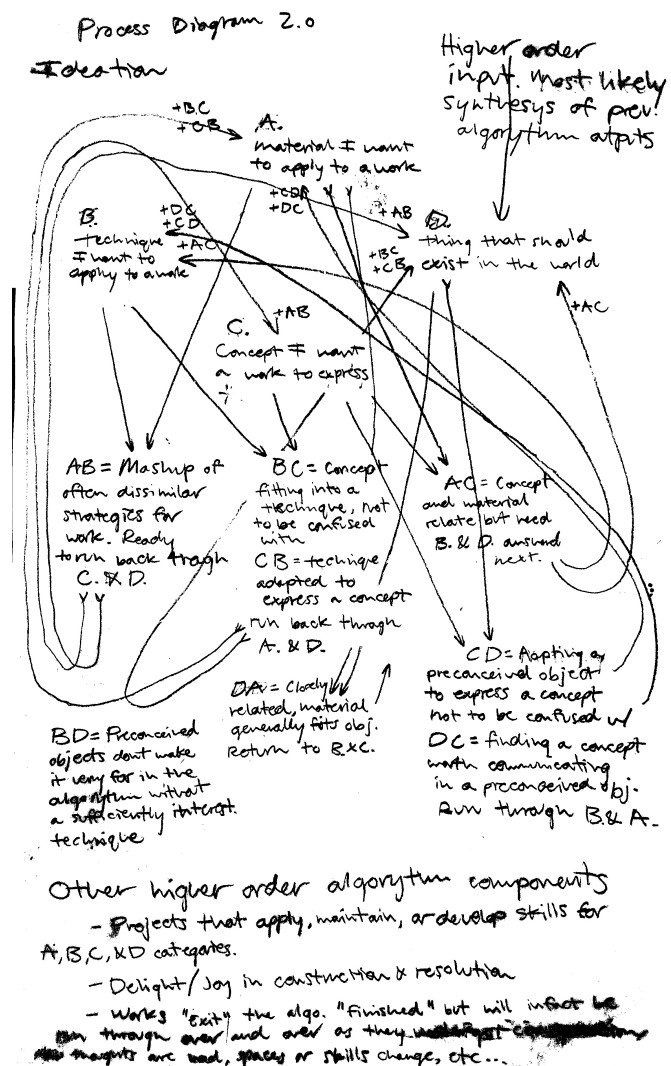 Process Diagram 2.0
Ideation
Higher order
input. Most likely
synthesys of prev.
algorythm outputs
+BC
+CB
A.
material I want
to apply to a work
+CD
+DC
+AB
B.
technique
I want to
apply to a work
+DC
+CD
+AC
D.
thing that should
exist in the world
+BC
+CB
+AC
+AB
C.
Concept I want
a work to express
AB = Mashup of
often dissimilar
strategies for
work. Ready
to run back trough
C. & D.
BC = Concept
fitting into a
technique, not
to be confused
with
CB = technique
adapted to
express a concept
run back through
A. & D.
AC = Concept
and material
relate but need
B. & D. answered
next.
DA = Closely
related, material
generally fits obj.
Return to B & C.
CD = Aapting a
preconceived object
to express a concept
not to be confused w/
DC = finding a concept
worth communicating
in a preconceived obj.
Run through B. & A.
BD = Preconceived
objects dont make
it very far in the
algorythm without
a sufficiently interest.
technique
Other higher order algorytm components
- Projects that apply, maintain, or develop skills for
A, B, C, & D categories.
- Delight/Joy in construction & resolution
- Works "exit" the algo. "finished" but will infact be
run through over and over as they
thoughts are had, spaces or skills change, etc...